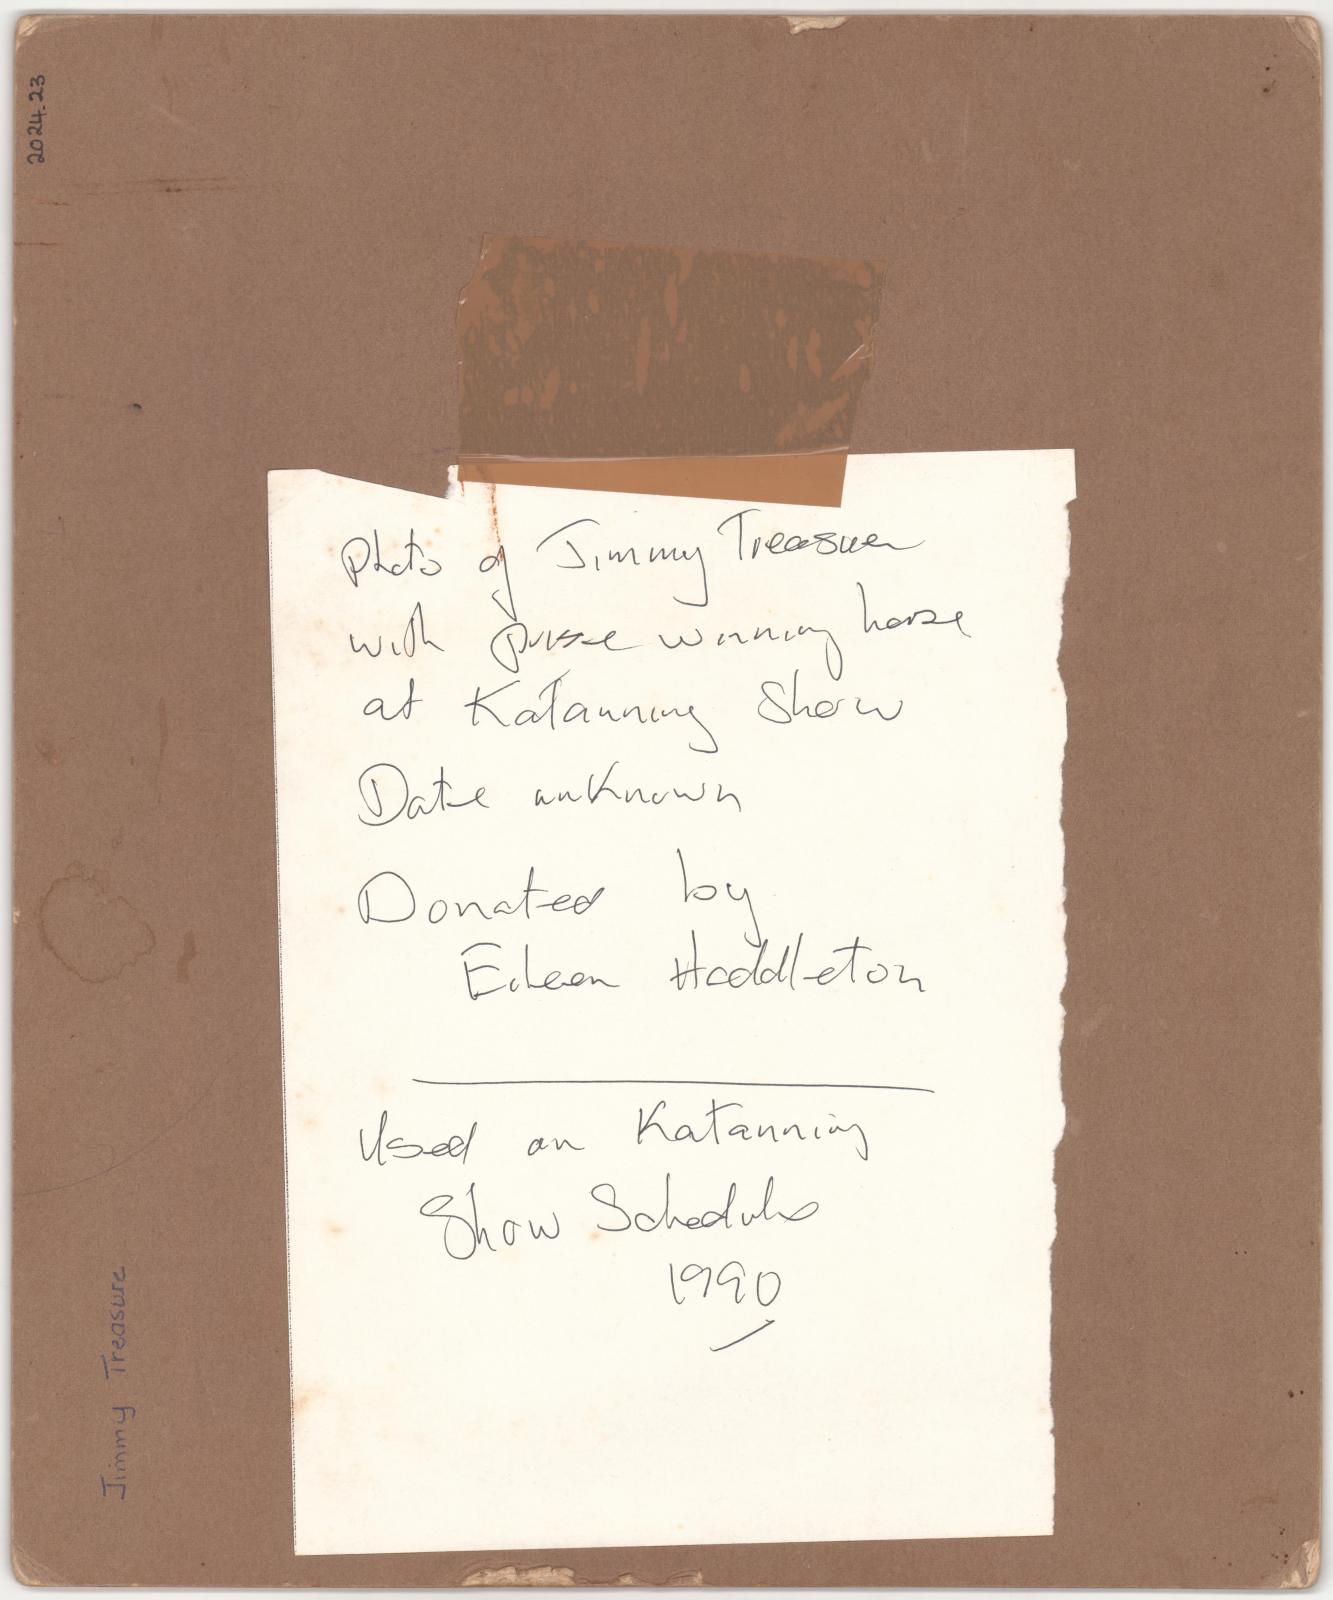 2024.23
Photo of Jimmy Treasure
with prize winning horse
at Katanning Show
Date unknown
Donated by
Eileen Hoddleton
Used on Katanning
Show Schedule
1990
Jimmy Treasure